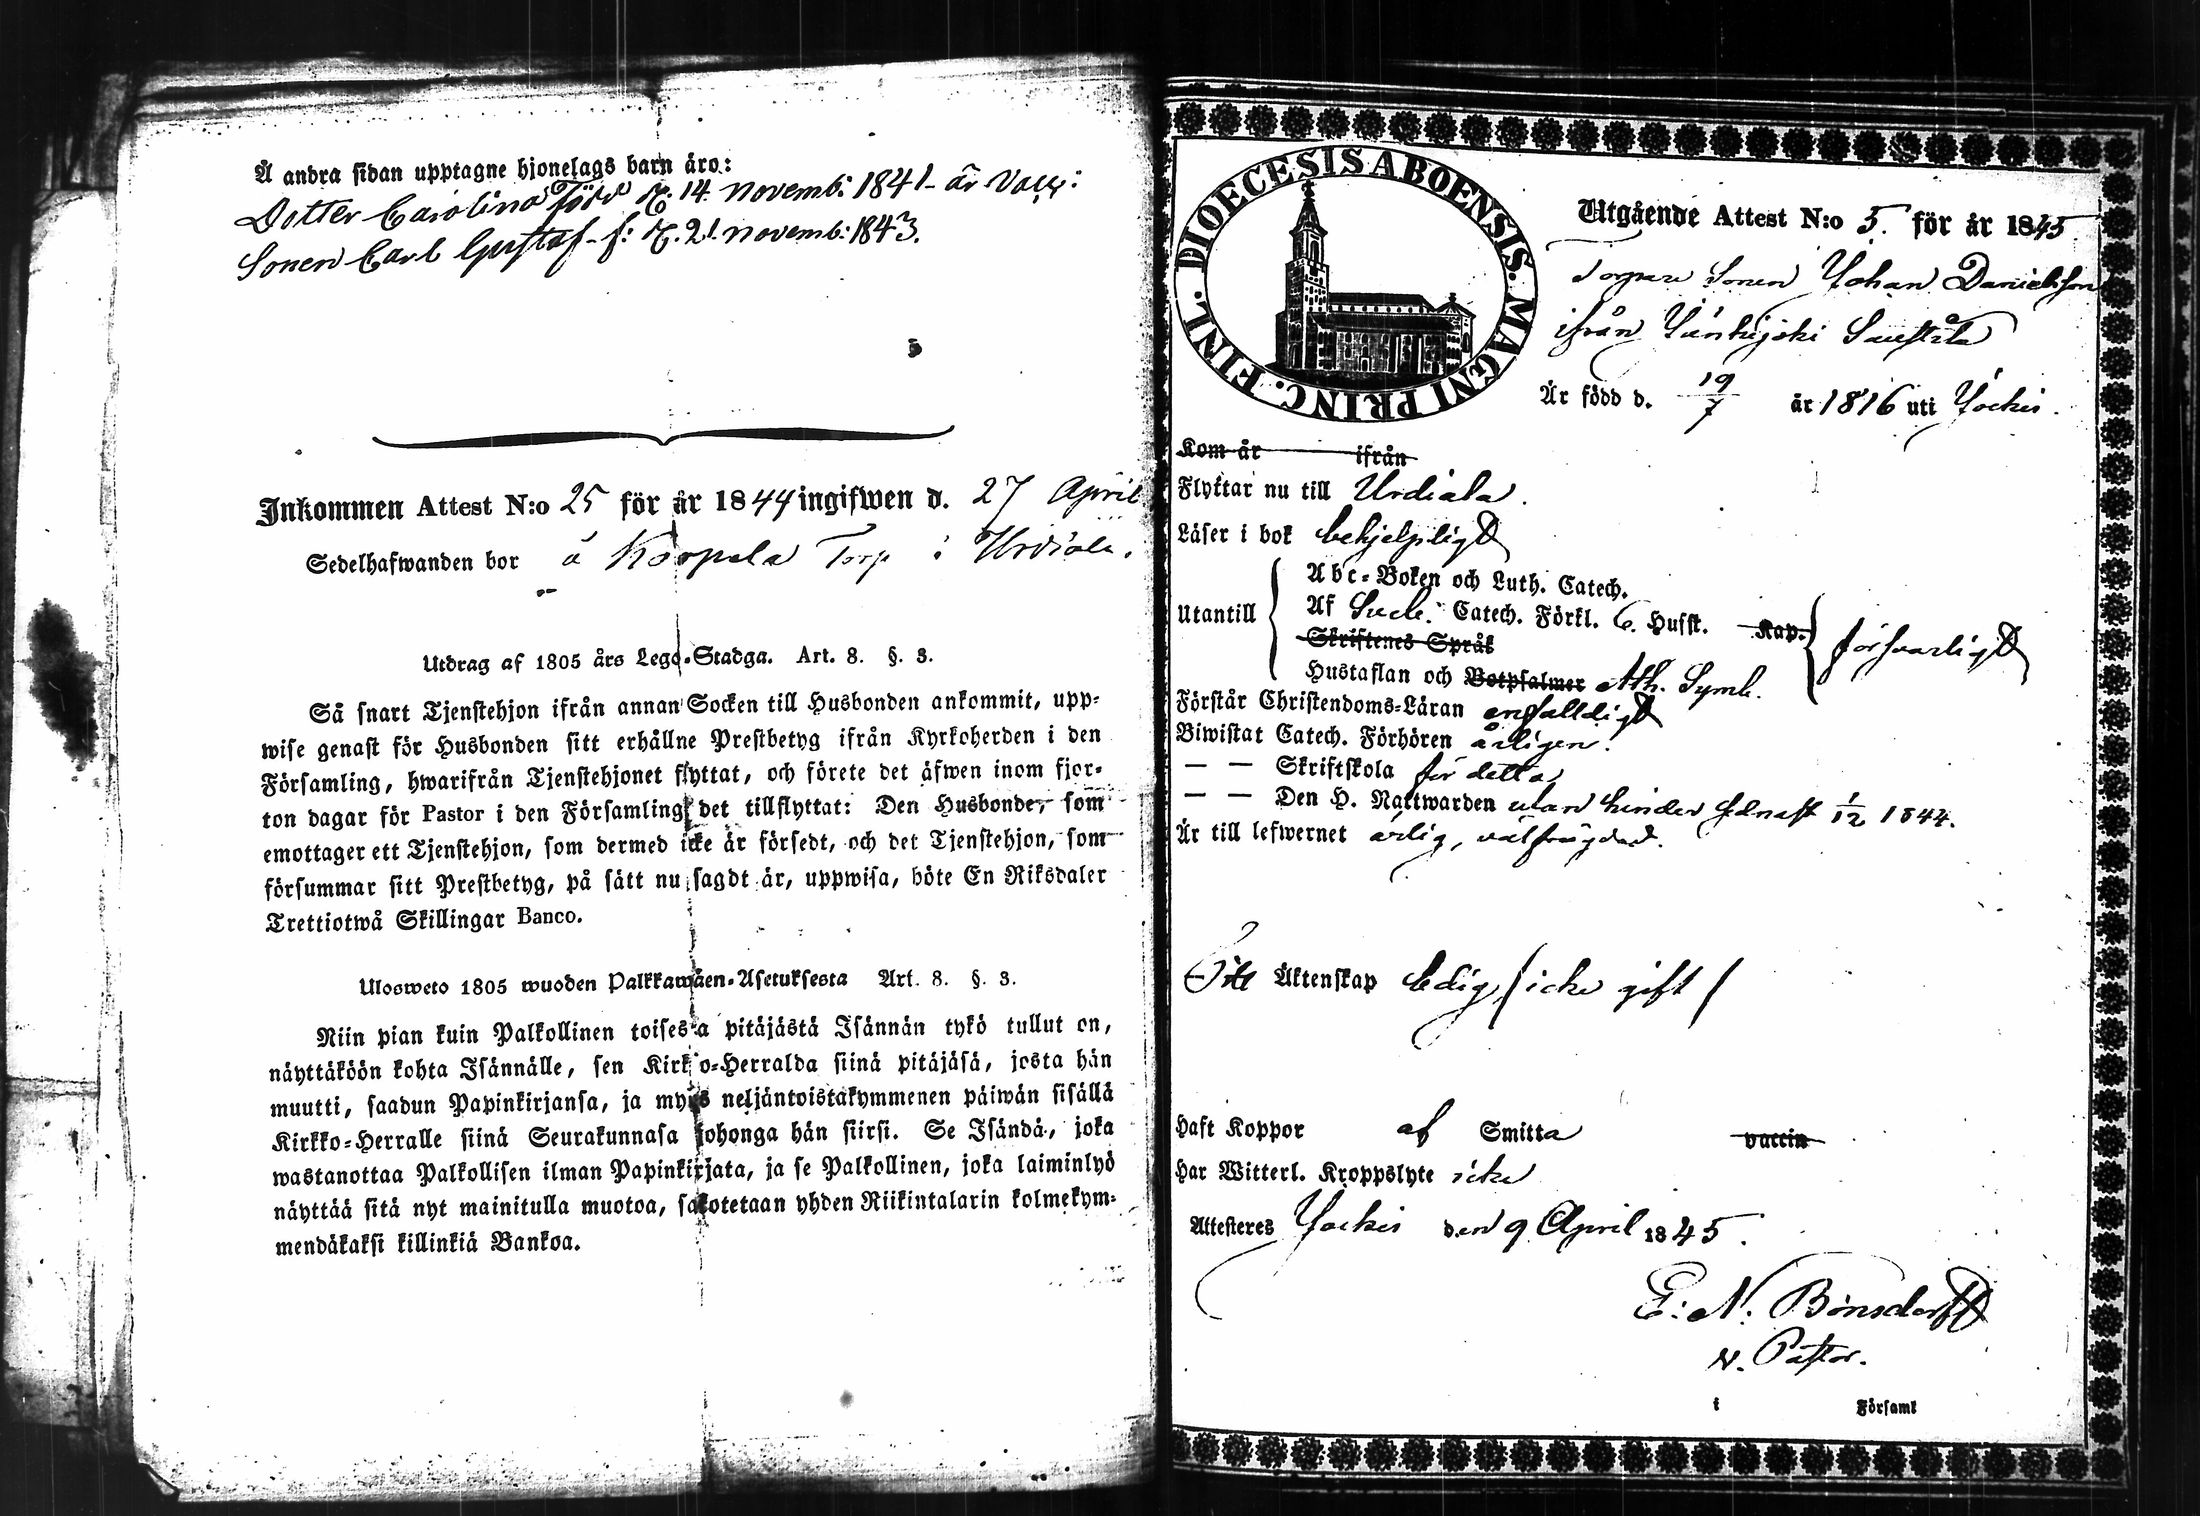 Å andra sidan upptagne hjonelags barn äro:
Dotter Carolina född d. 14 novemb: 1841 - är vacc:
Sonen Carl Gustaf - f: d. 21 novemb: 1843.
Inkommen Attest N:o 25 för år 1844 ingifwen d. 27 April
Sedelhafwanden bor å Korpela Torp i Urdiala.
Utdrag af 1805 års Lego-Stadga. Art. 8. §. 3.
Så snart Tjenstehjon ifrån annan Socken till Husbonden ankommit, upp-
wise genast för Husbonden sitt erhållne Prestbetyg ifrån Kyrkoherden i den
Församling, hwarifrån Tjenstehjonet flyttat, och förete det äfwen inom fjor-
ton dagar för Pastor i den Församling det tillflyttat: Den Husbonde, som
emottager ett Tjenstehjon, som dermed icke är försedt, och det Tjenstehjon, som
försummar sitt Prestbetyg, på sätt nu sagdt är, uppwisa, böte En Riksdaler
Trettiotwå Skillingar Banco.
Ulosweto 1805 wuoden Palkkawäen-Asetuksesta Art. 8. §. 3.
Niin pian kuin Palkollinen toisesta pitäjästä Isännän tykö tullut on,
näyttäköön kohta Isännälle, sen Kirkko-Herralda siinä pitäjäsä, josta hän
muutti, saadun Papinkirjansa, ja myös neljäntoistakymmenen päiwän sisällä
Kirkko-Herralle siinä Seurakunnasa johonga hän siirsi. Se Isändä, joka
wastanottaa Palkollisen ilman Papinkirjata, ja se Palkollinen, joka laiminlyö
näyttää sitä nyt mainitulla muotoa, sakotetaan yhden Riikintalarin kolmekym-
mendäkaksi killinkiä Bankoa.
DIOECESIS ABOENSIS. MAGNI PRINC. FINL.
Utgående Attest N:o 5. för år 1845
Torpare Sonen Johan Danielsson
ifrån
Är född d. 19/7 år 1816 uti Jockis.
Kom år ifrån
Flyttar nu till Urdiala.
Läser i bok behjelpligt
Utantill
Abc-Boken och Luth. Catech.
Af Sveb. Catech. Förkl. 6. Hufst. Kap.
Skriftenes Språk
Hustaflan och Botpsalmer Ath. Symb.
försvarligt
Förstår Christendoms-Läran enfalldigt
Biwistat Catech. Förhören årligen.
— — Skriftskola för detta
— — Den H. Nattwarden utan hinder sednast 1/12 1844.
Är till lefwernet ärlig, välfrägdad.
Äktenskap ledig (icke gift)
Haft Koppor af Smitta vaccin
Har Witterl. Kroppslyte icke
Attesteres Jockis den 9 April 1845.
E: N. Bonsdorff
N. Pastor.
i Församl